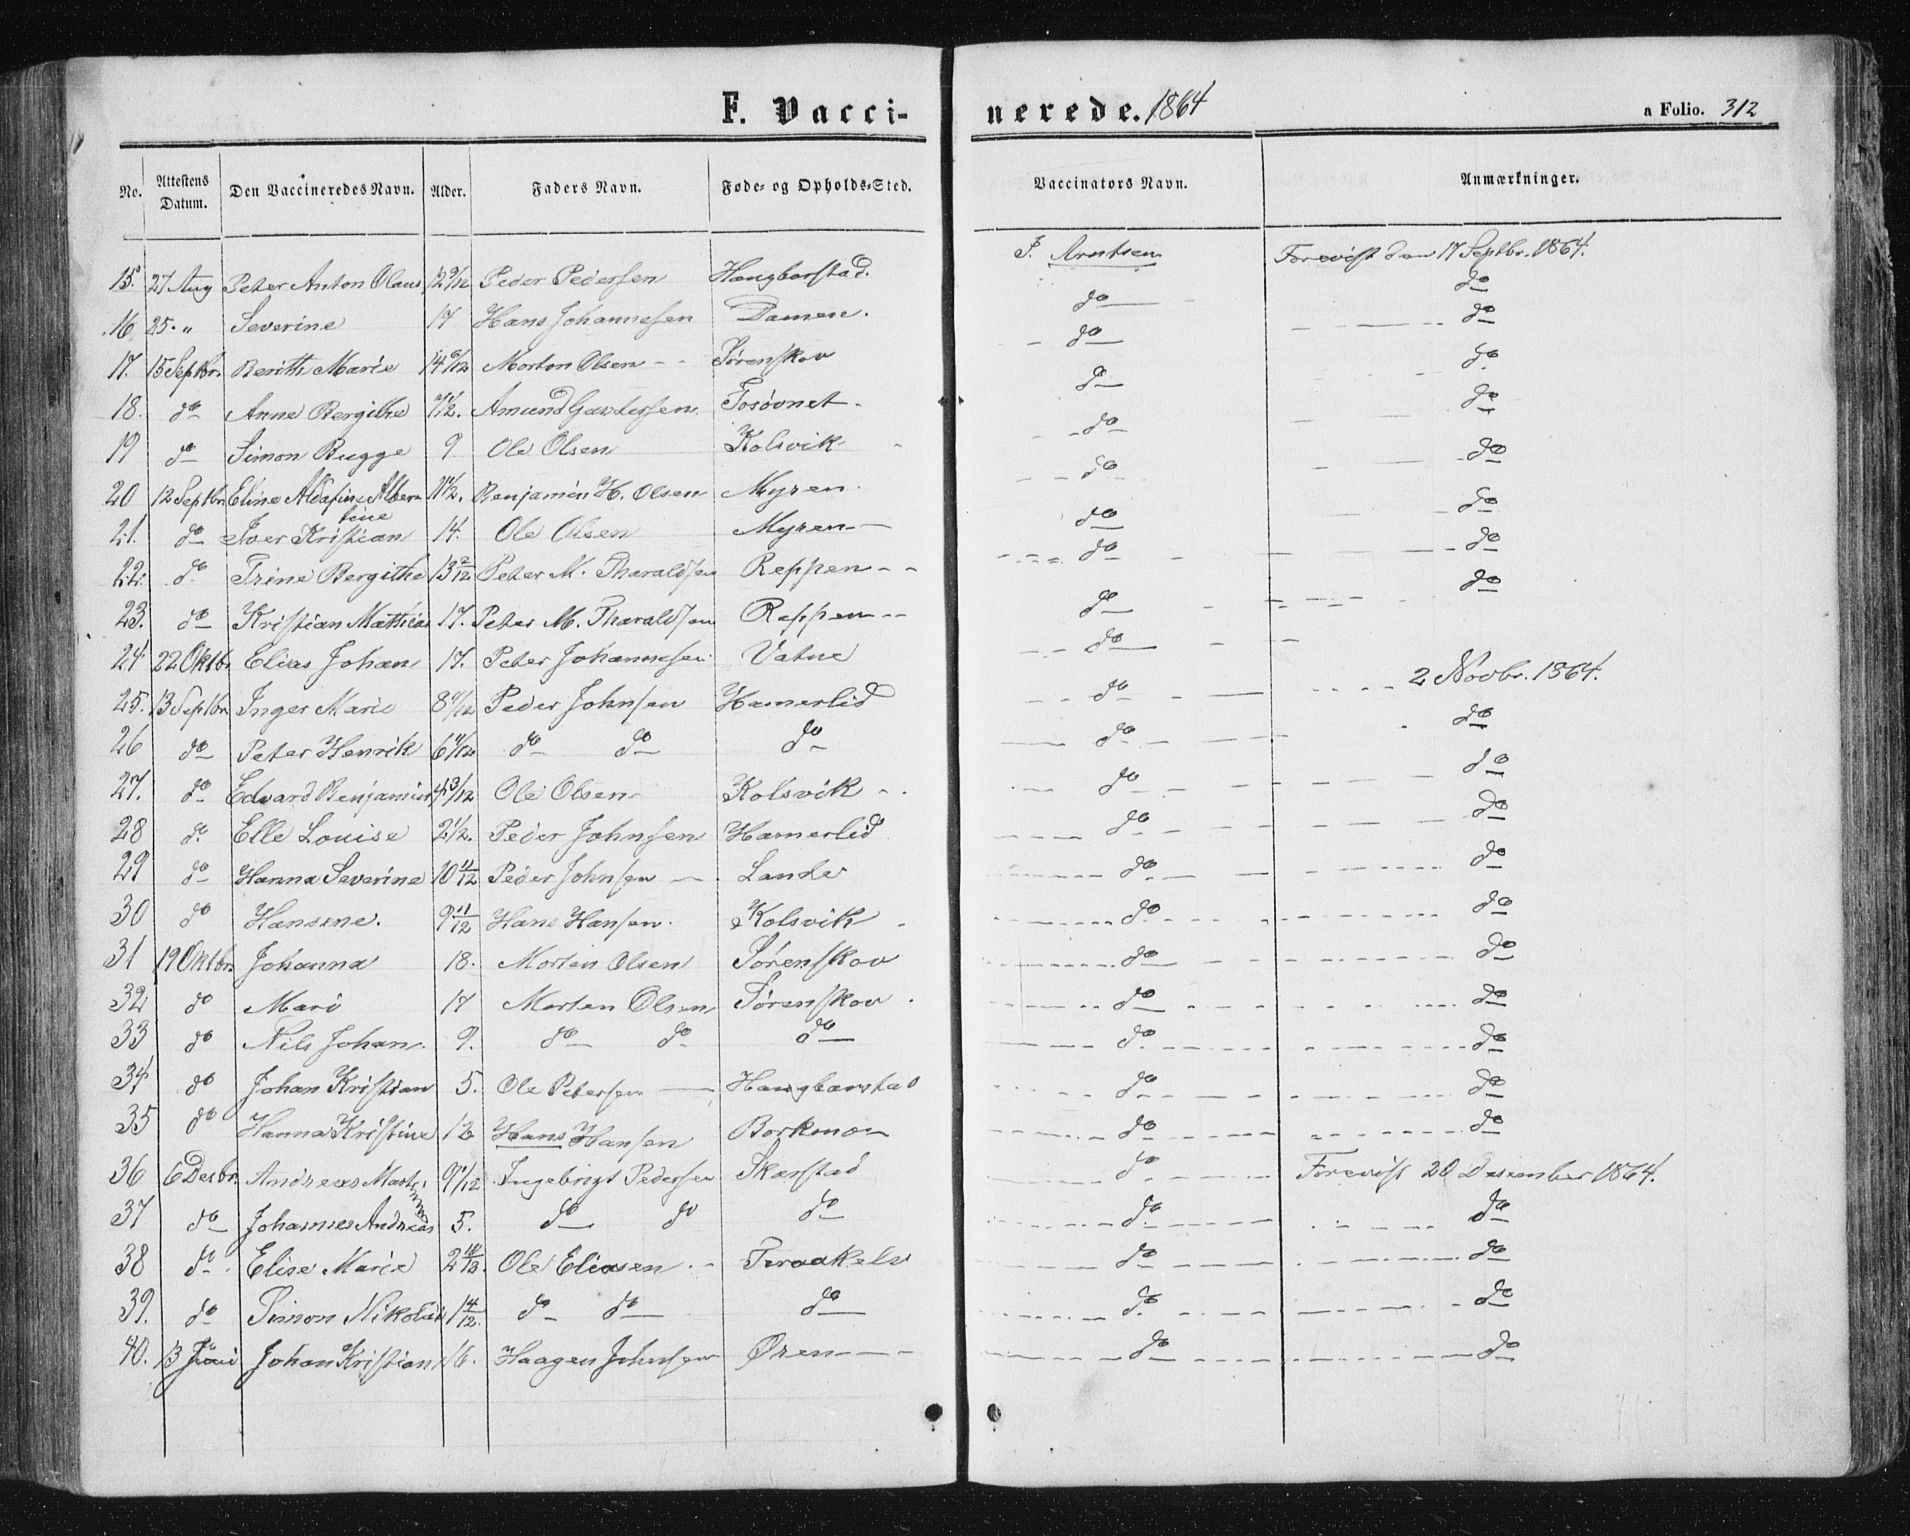 F. Vaccinerede. 1864
a Folio. 312
No. Attestens Datum. Den Vaccineredes Navn. Alder. Faders Navn. Føde- og Opholds-Sted. Vaccinators Navn. Anmærkninger.
15. 27 Aug Peter Anton Olaus 12 9/12 Peder Pedersen Haugbarstad. P. Arntsen Forevist den 17 Septbr. 1864.
16 25. " Severine 17 Hans Johannesen Damen. do do
17. 15 Septbr. Berith Marie 14 6/12 Morten Olsen Sørenskov do do
18. do Anne Bergithe 7 1/2. Amund Gundersen Tosøvnet do do
19 do Simon Bugge 9 Ole Olsen Kolsvik do do
20 12 Septbr. Eline Aldafine Albertine 11 1/2. Benjamin H. Olsen Myren do do
21. do Iver Kristian 14. Ole Olsen Myren do do
22. do Trine Bergithe 13 2/12 Peter M. Tharaldsen Reppen do do
23. do Kristian Mathias 17. Peter M. Tharaldsen Reppen do do
24 22 Oktbr. Elias Johan 17. Peter Johannesen Vatne do
25. 13 Septbr. Inger Marie 8 Peder Johnsen Hamerlid do 2 Novbr. 1864.
26 do Peter Henrik 6 do do do do do
27. do Edvard Benjamin 4 3/12 Ole Olsen Kolsvik do do
28 do Elle Louise 2 1/2. Peder Johnsen Hamerlid do do
29 do Hanna Severine 10 11/12 Peder Johnsen Lande do do
30 do Hansine. 9 11/12 Hans Hansen. Kolsvik do do
31 19 Oktbr. Johanna 18. Morten Olsen Sørenskov do do
32 do Mari 17 Morten Olsen Sørenskov do do
33 do Nils Johan. 9. do do do do do
34 do Johan Kristian 5. Ole Petersen Haugbarstad do do
35 do Hanna Kristine 12 Hans Hansen Borkmo do do
36 6 Desbr. Andreas 9 1/12 Ingebrigt Pedersen Skarstad do Forevist 20 Desember 1864.
37 do Johannes Andreas 5. do do do do do
38 do Elise Marie 2 Ole Eliasen Terraakelv do do
39. do Simon Nikolai 1 4/12. do do do do do
40. 13 Juni Johan Kristian 16. Haagen Johnsen Øren do do